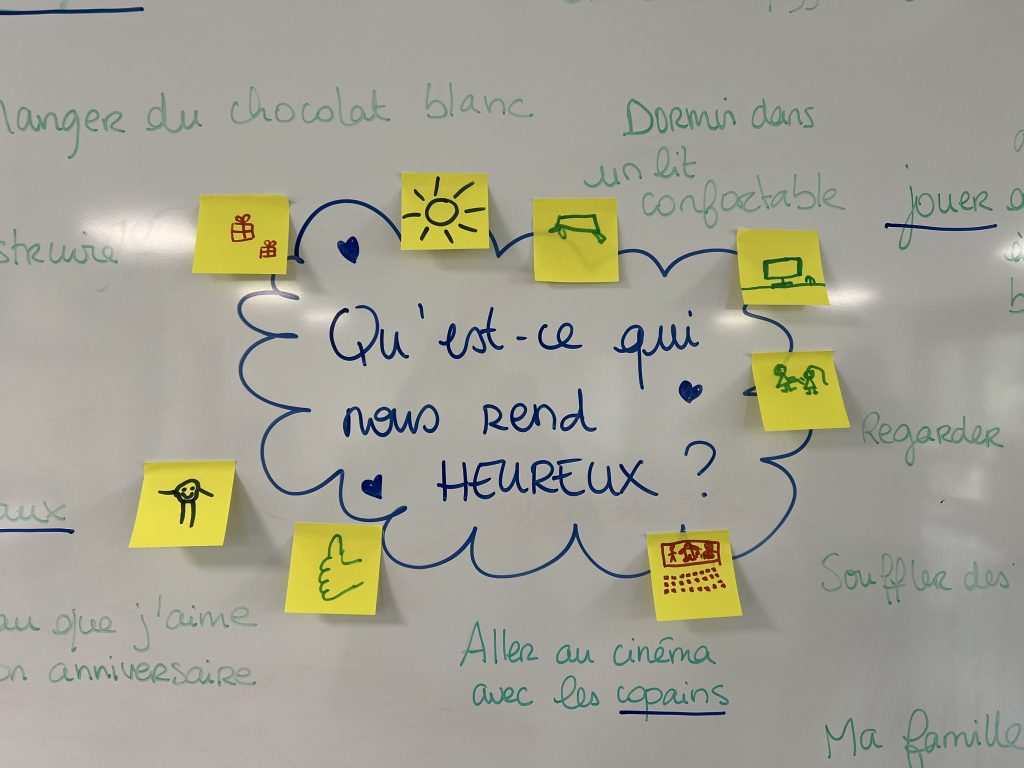 Manger du chocolat blanc
Dormir dans
un lit
confortable
jouer
Qu'est-ce qui
nous rend
HEUREUX ?
Regarder
Souffler des
que j'aime
anniversaire
Aller au cinéma
avec les copains
Ma famille